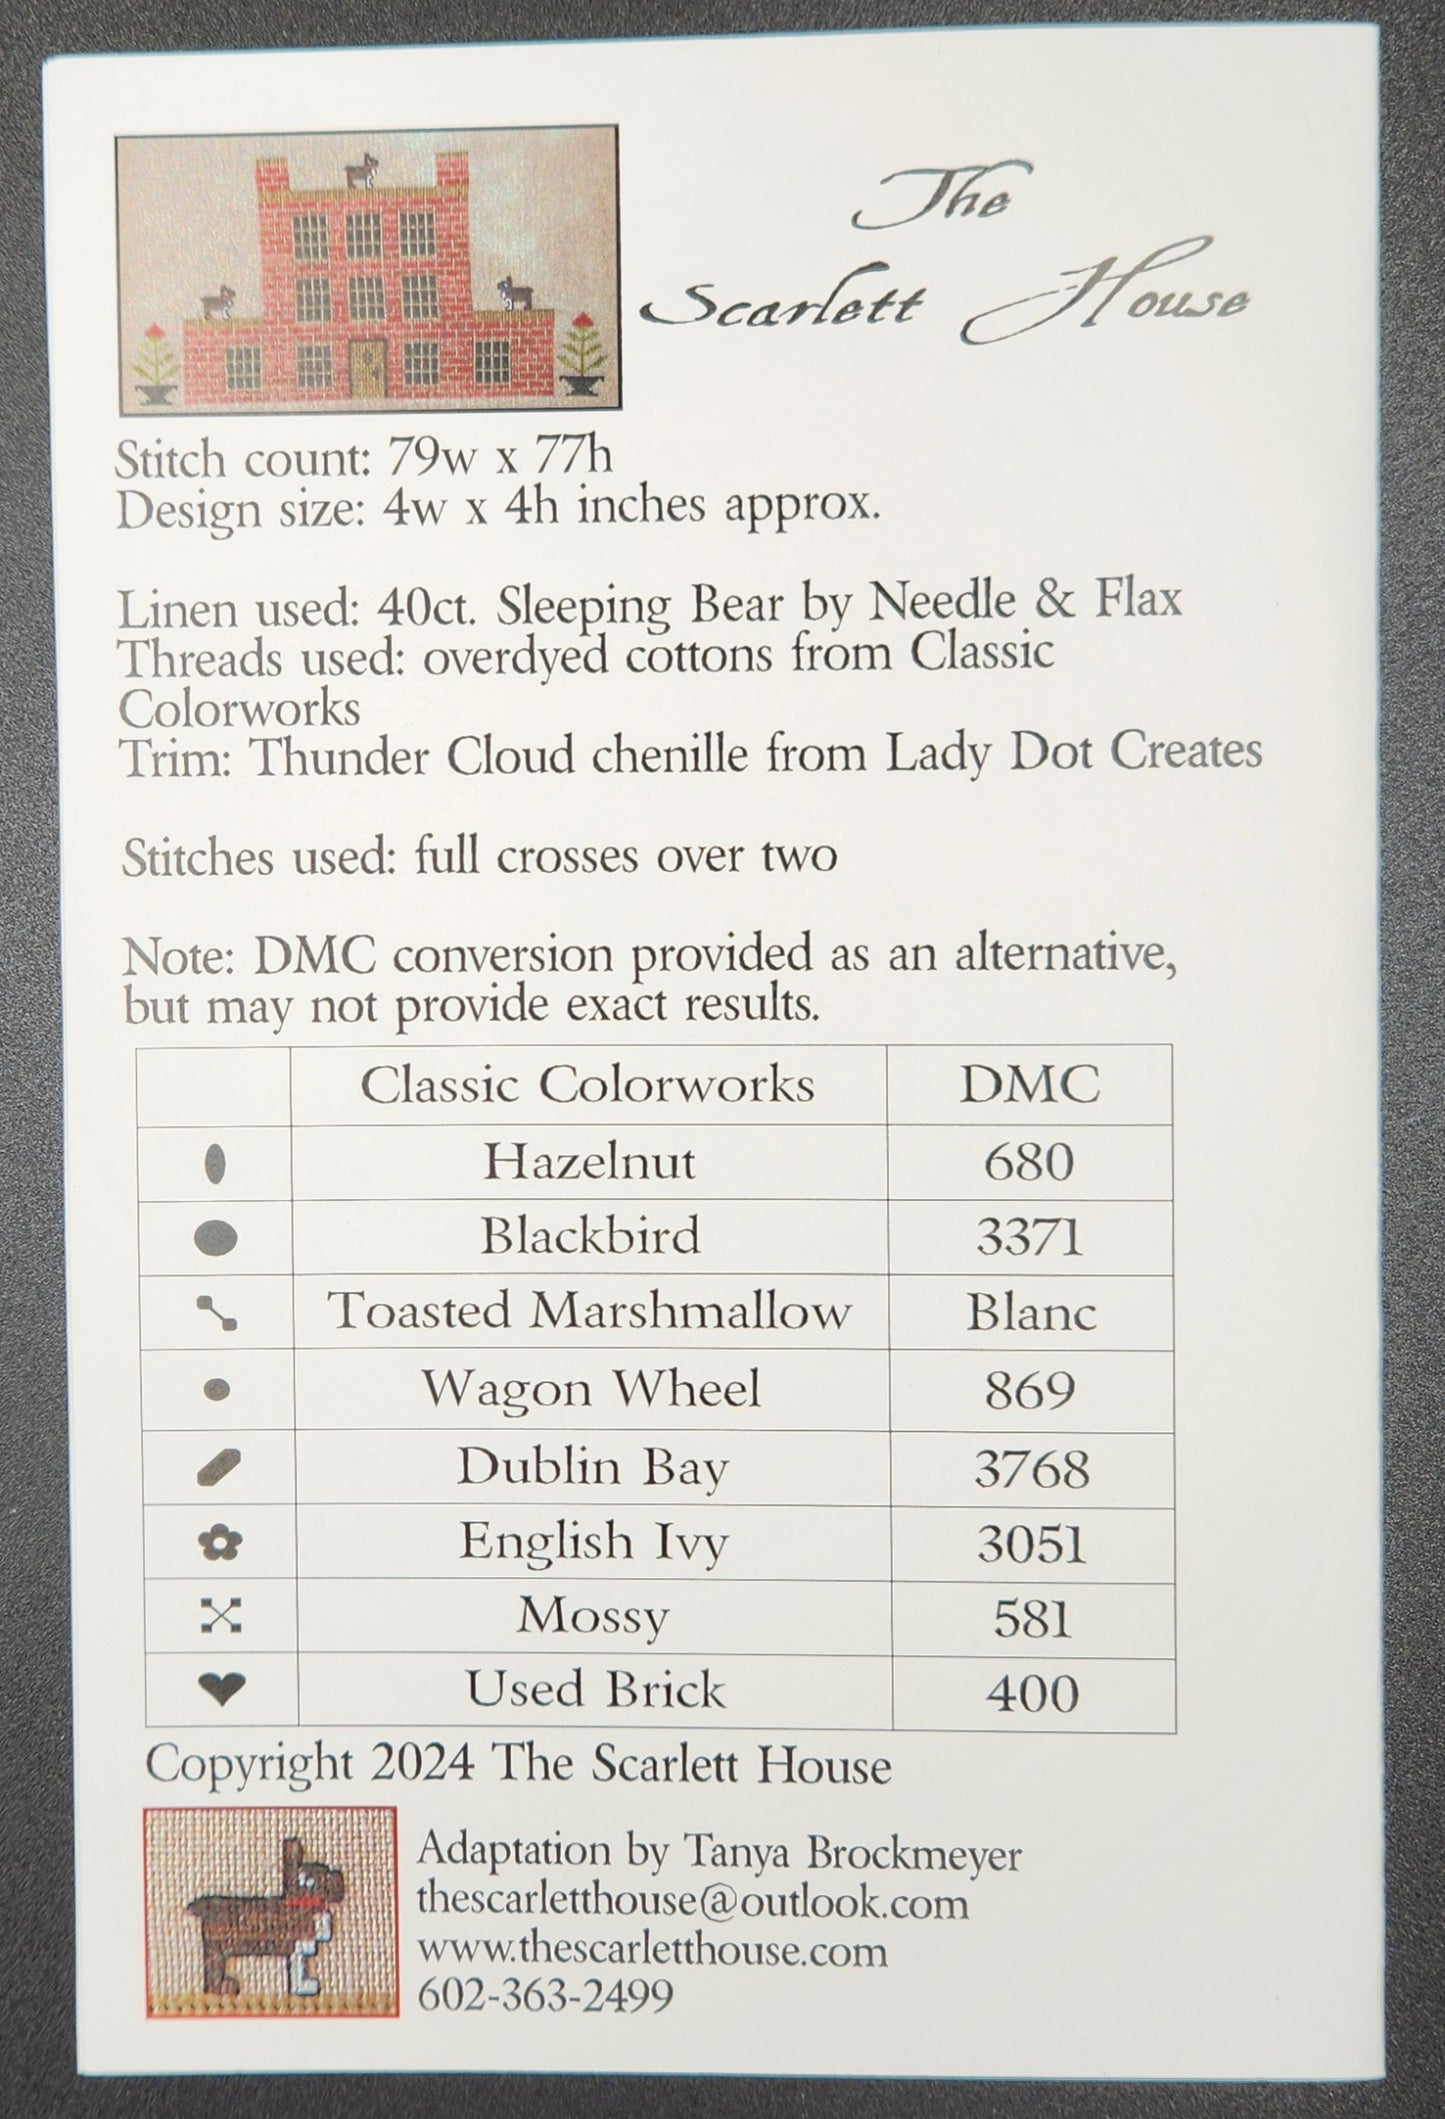 The
Scarlett House
Stitch count: 79w x 77h
Design size: 4w x 4h inches approx.
Linen used: 40ct. Sleeping Bear by Needle & Flax
Threads used: overdyed cottons from Classic
Colorworks
Trim: Thunder Cloud chenille from Lady Dot Creates
Stitches used: full crosses over two
Note: DMC conversion provided as an alternative,
but may not provide exact results.
Classic Colorworks DMC
Hazelnut 680
Blackbird 3371
Toasted Marshmallow Blanc
Wagon Wheel 869
Dublin Bay 3768
English Ivy 3051
Mossy 581
Used Brick 400
Copyright 2024 The Scarlett House
Adaptation by Tanya Brockmeyer
thescarletthouse@outlook.com
www.thescarletthouse.com
602-363-2499